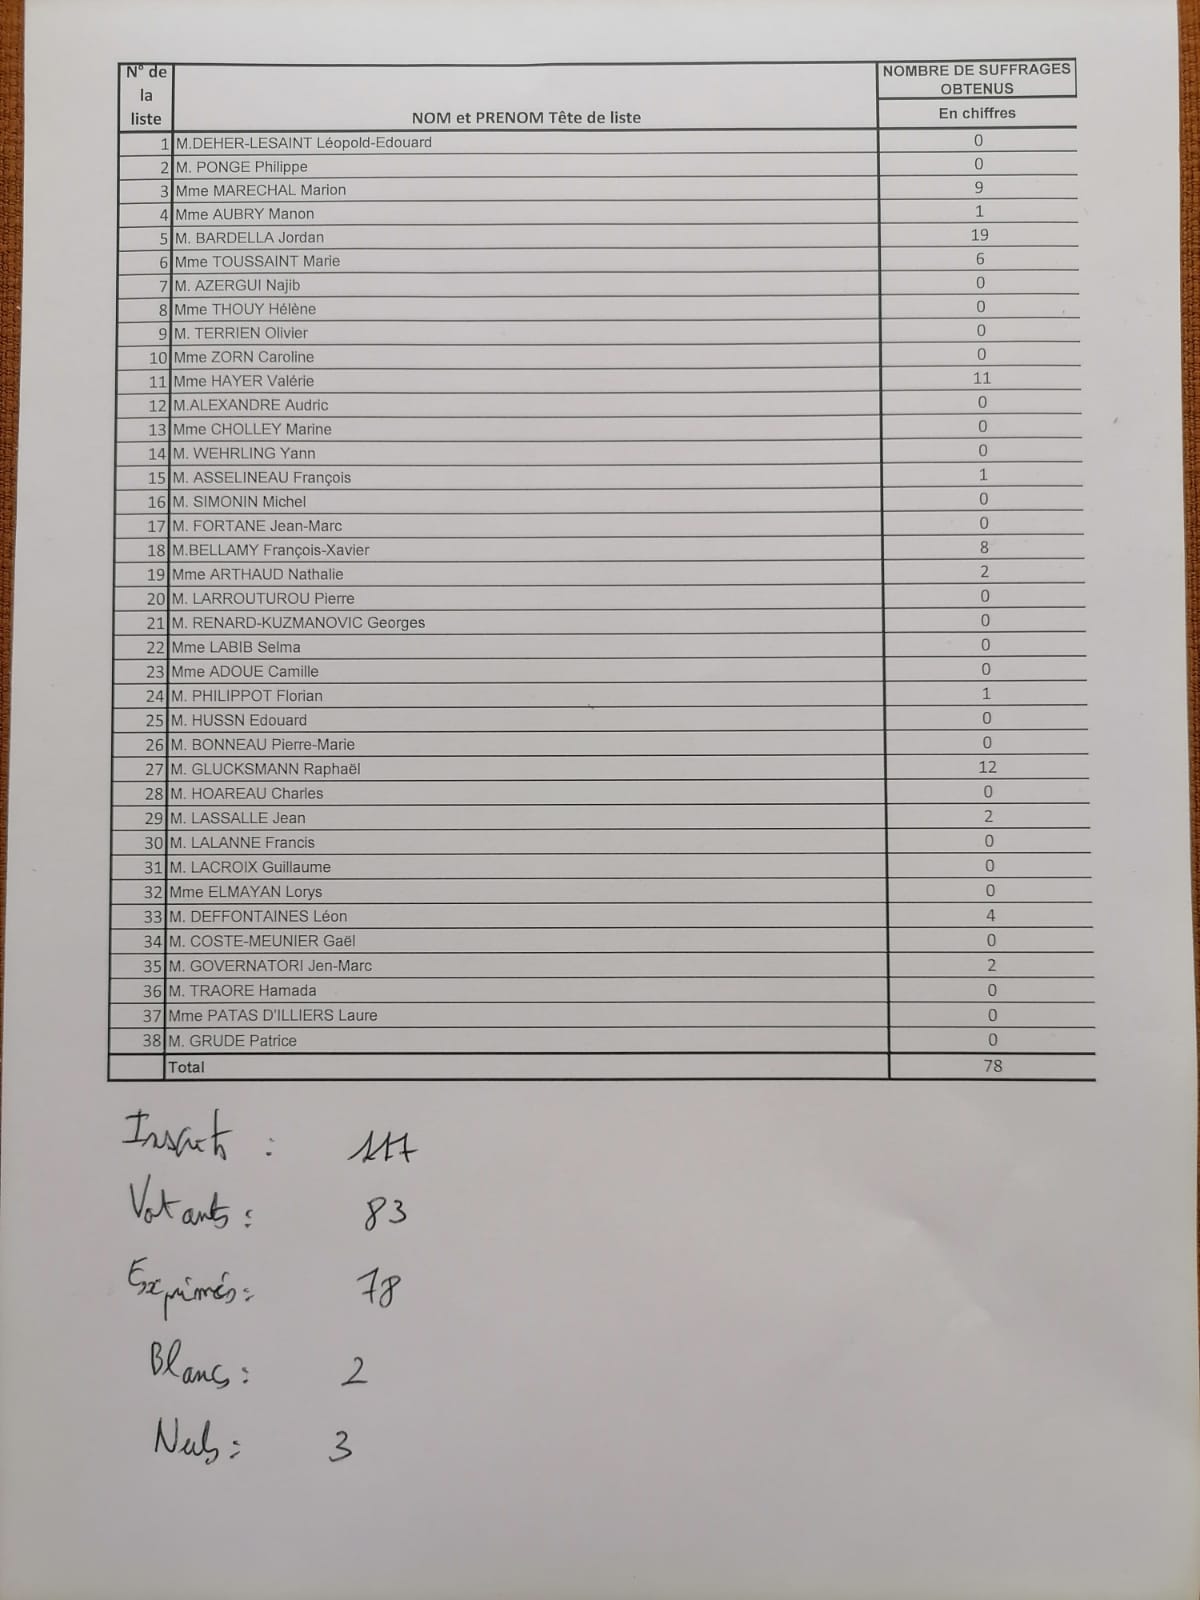 N° de la liste NOM et PRENOM Tête de liste NOMBRE DE SUFFRAGES OBTENUS
En chiffres
1 M.DEHER-LESAINT Léopold-Edouard 0
2 M. PONGE Philippe 0
3 Mme MARECHAL Marion 9
4 Mme AUBRY Manon 1
5 M. BARDELLA Jordan 19
6 Mme TOUSSAINT Marie 6
7 M. AZERGUI Najib 0
8 Mme THOUY Hélène 0
9 M. TERRIEN Olivier 0
10 Mme ZORN Caroline 0
11 Mme HAYER Valérie 11
12 M.ALEXANDRE Audric 0
13 Mme CHOLLEY Marine 0
14 M. WEHRLING Yann 0
15 M. ASSELINEAU François 1
16 M. SIMONIN Michel 0
17 M. FORTANE Jean-Marc 0
18 M.BELLAMY François-Xavier 8
19 Mme ARTHAUD Nathalie 2
20 M. LARROUTUROU Pierre 0
21 M. RENARD-KUZMANOVIC Georges 0
22 Mme LABIB Selma 0
23 Mme ADOUE Camille 0
24 M. PHILIPPOT Florian 1
25 M. HUSSN Edouard 0
26 M. BONNEAU Pierre-Marie 0
27 M. GLUCKSMANN Raphaël 12
28 M. HOAREAU Charles 0
29 M. LASSALLE Jean 2
30 M. LALANNE Francis 0
31 M. LACROIX Guillaume 0
32 Mme ELMAYAN Lorys 0
33 M. DEFFONTAINES Léon 4
34 M. COSTE-MEUNIER Gaël 0
35 M. GOVERNATORI Jen-Marc 2
36 M. TRAORE Hamada 0
37 Mme PATAS D'ILLIERS Laure 0
38 M. GRUDE Patrice 0
Total 78
Inscrits : 117
Votants : 83
Exprimés : 78
Blancs : 2
Nuls : 3